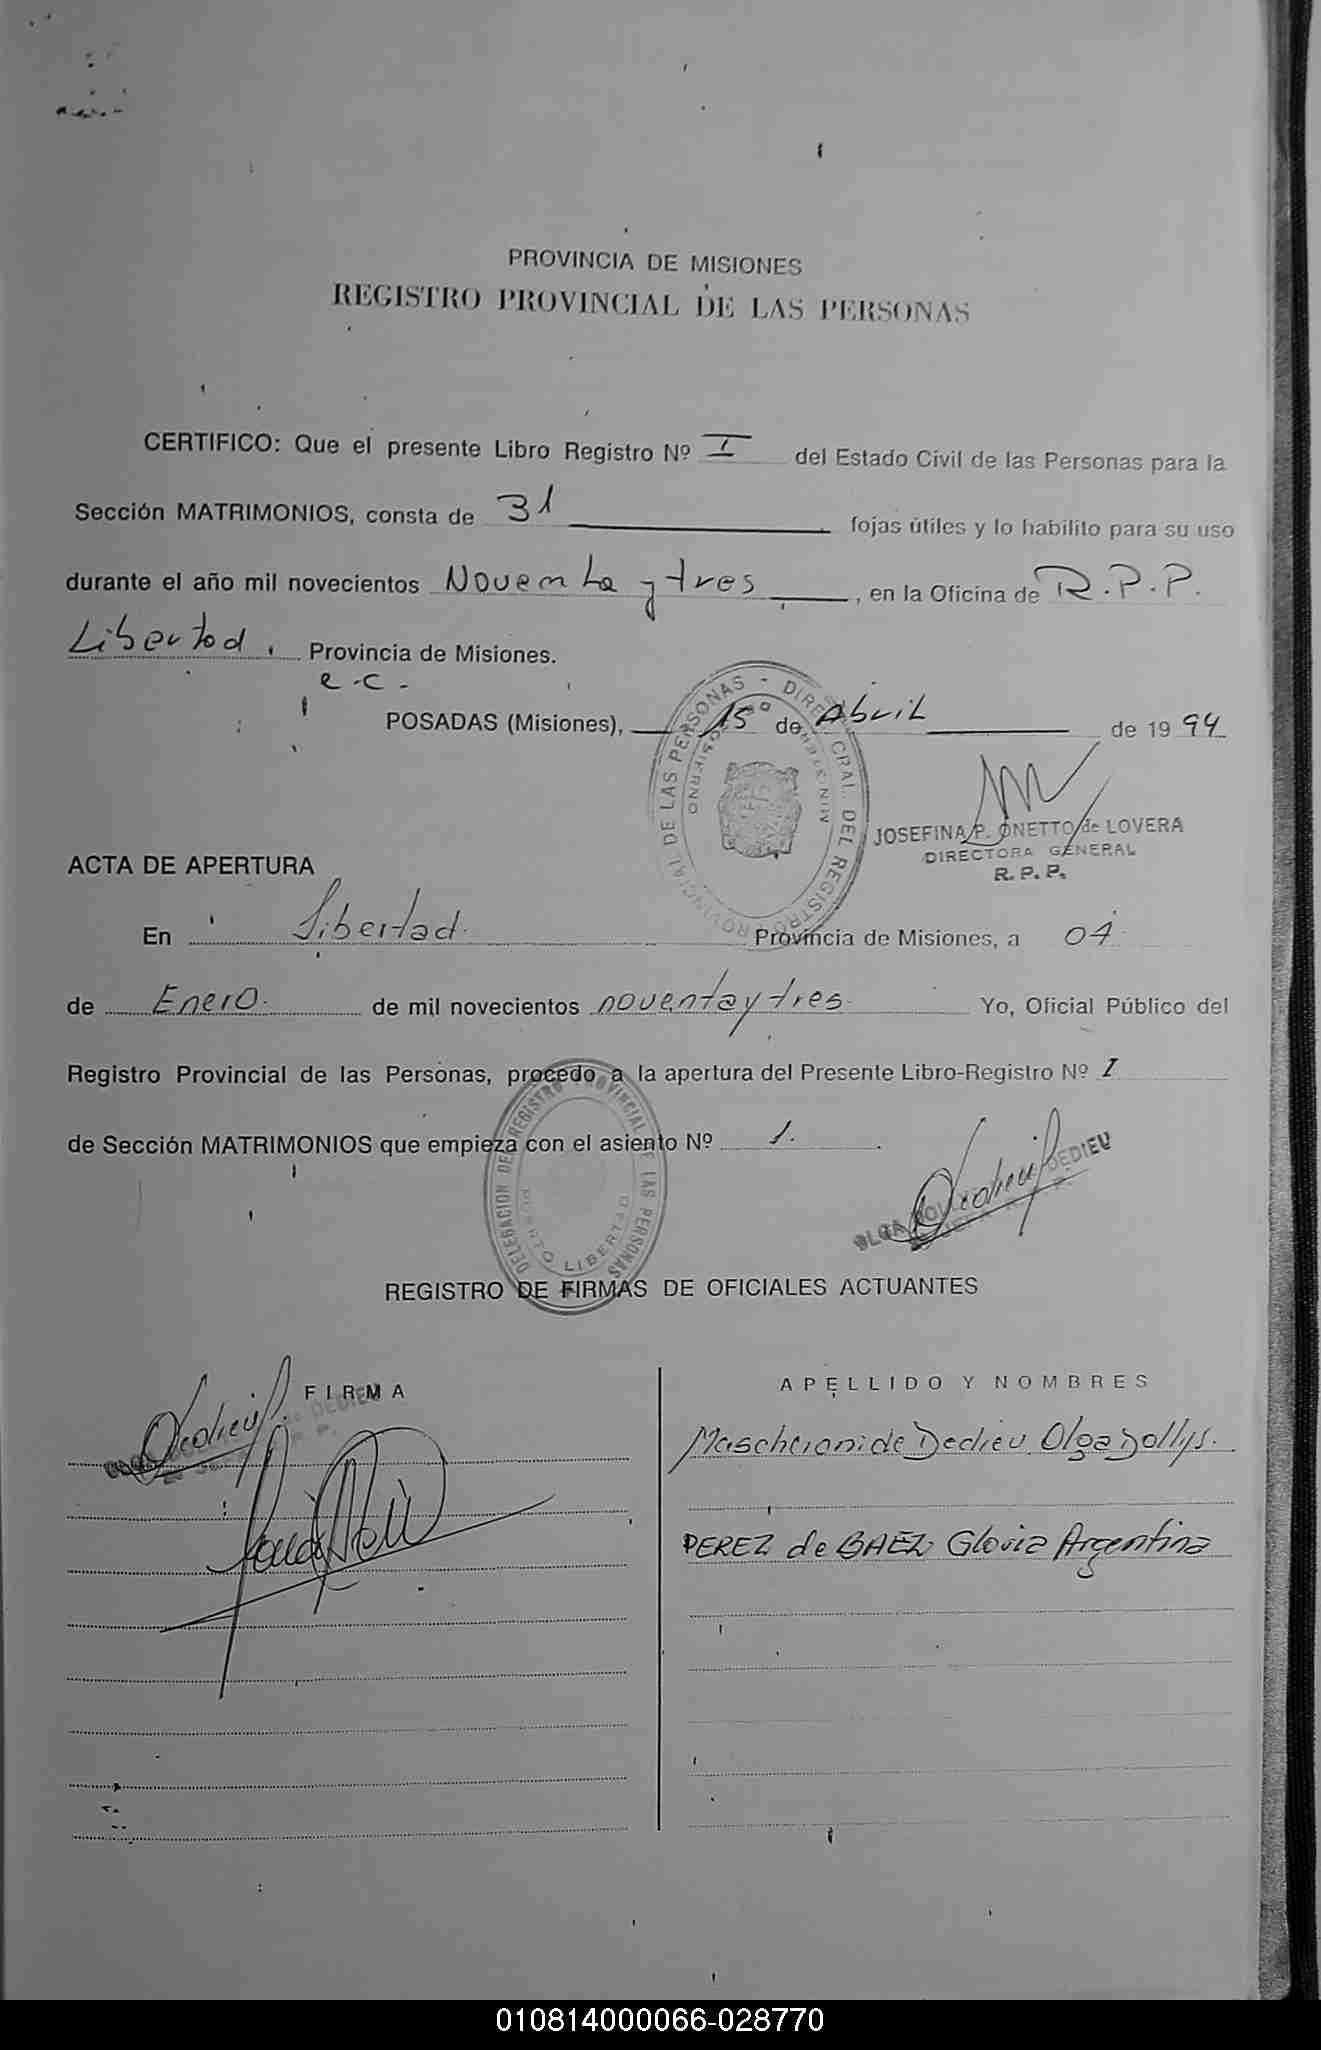 PROVINCIA DE MISIONES
REGISTRO PROVINCIAL DE LAS PERSONAS
CERTIFICO: Que el presente Libro Registro Nº I del Estado Civil de las Personas para la
Sección MATRIMONIOS, consta de 31 fojas útiles y lo habilito para su uso
durante el año mil novecientos Noventa y tres, en la Oficina de R.P.P.
Libertad, Provincia de Misiones.
e.c.
POSADAS (Misiones), 15 de Abril de 1994
JOSEFINA P. ONETTO de LOVERA
DIRECTORA GENERAL
R.P.P.
ACTA DE APERTURA
En Libertad. Provincia de Misiones, a 04
de Enero. de mil novecientos noventa y tres. Yo, Oficial Público del
Registro Provincial de las Personas, procedo a la apertura del Presente Libro-Registro Nº I
de Sección MATRIMONIOS que empieza con el asiento Nº 1.
DELEGACION DEL REGISTRO PROVINCIAL DE LAS PERSONAS
PUERTO LIBERTAD
REGISTRO DE FIRMAS DE OFICIALES ACTUANTES
FIRMA
APELLIDO Y NOMBRES
Mascheroni de Dedieu Olga Dollys.
PEREZ de BAEZ Gloria Argentina
010814000066-028770